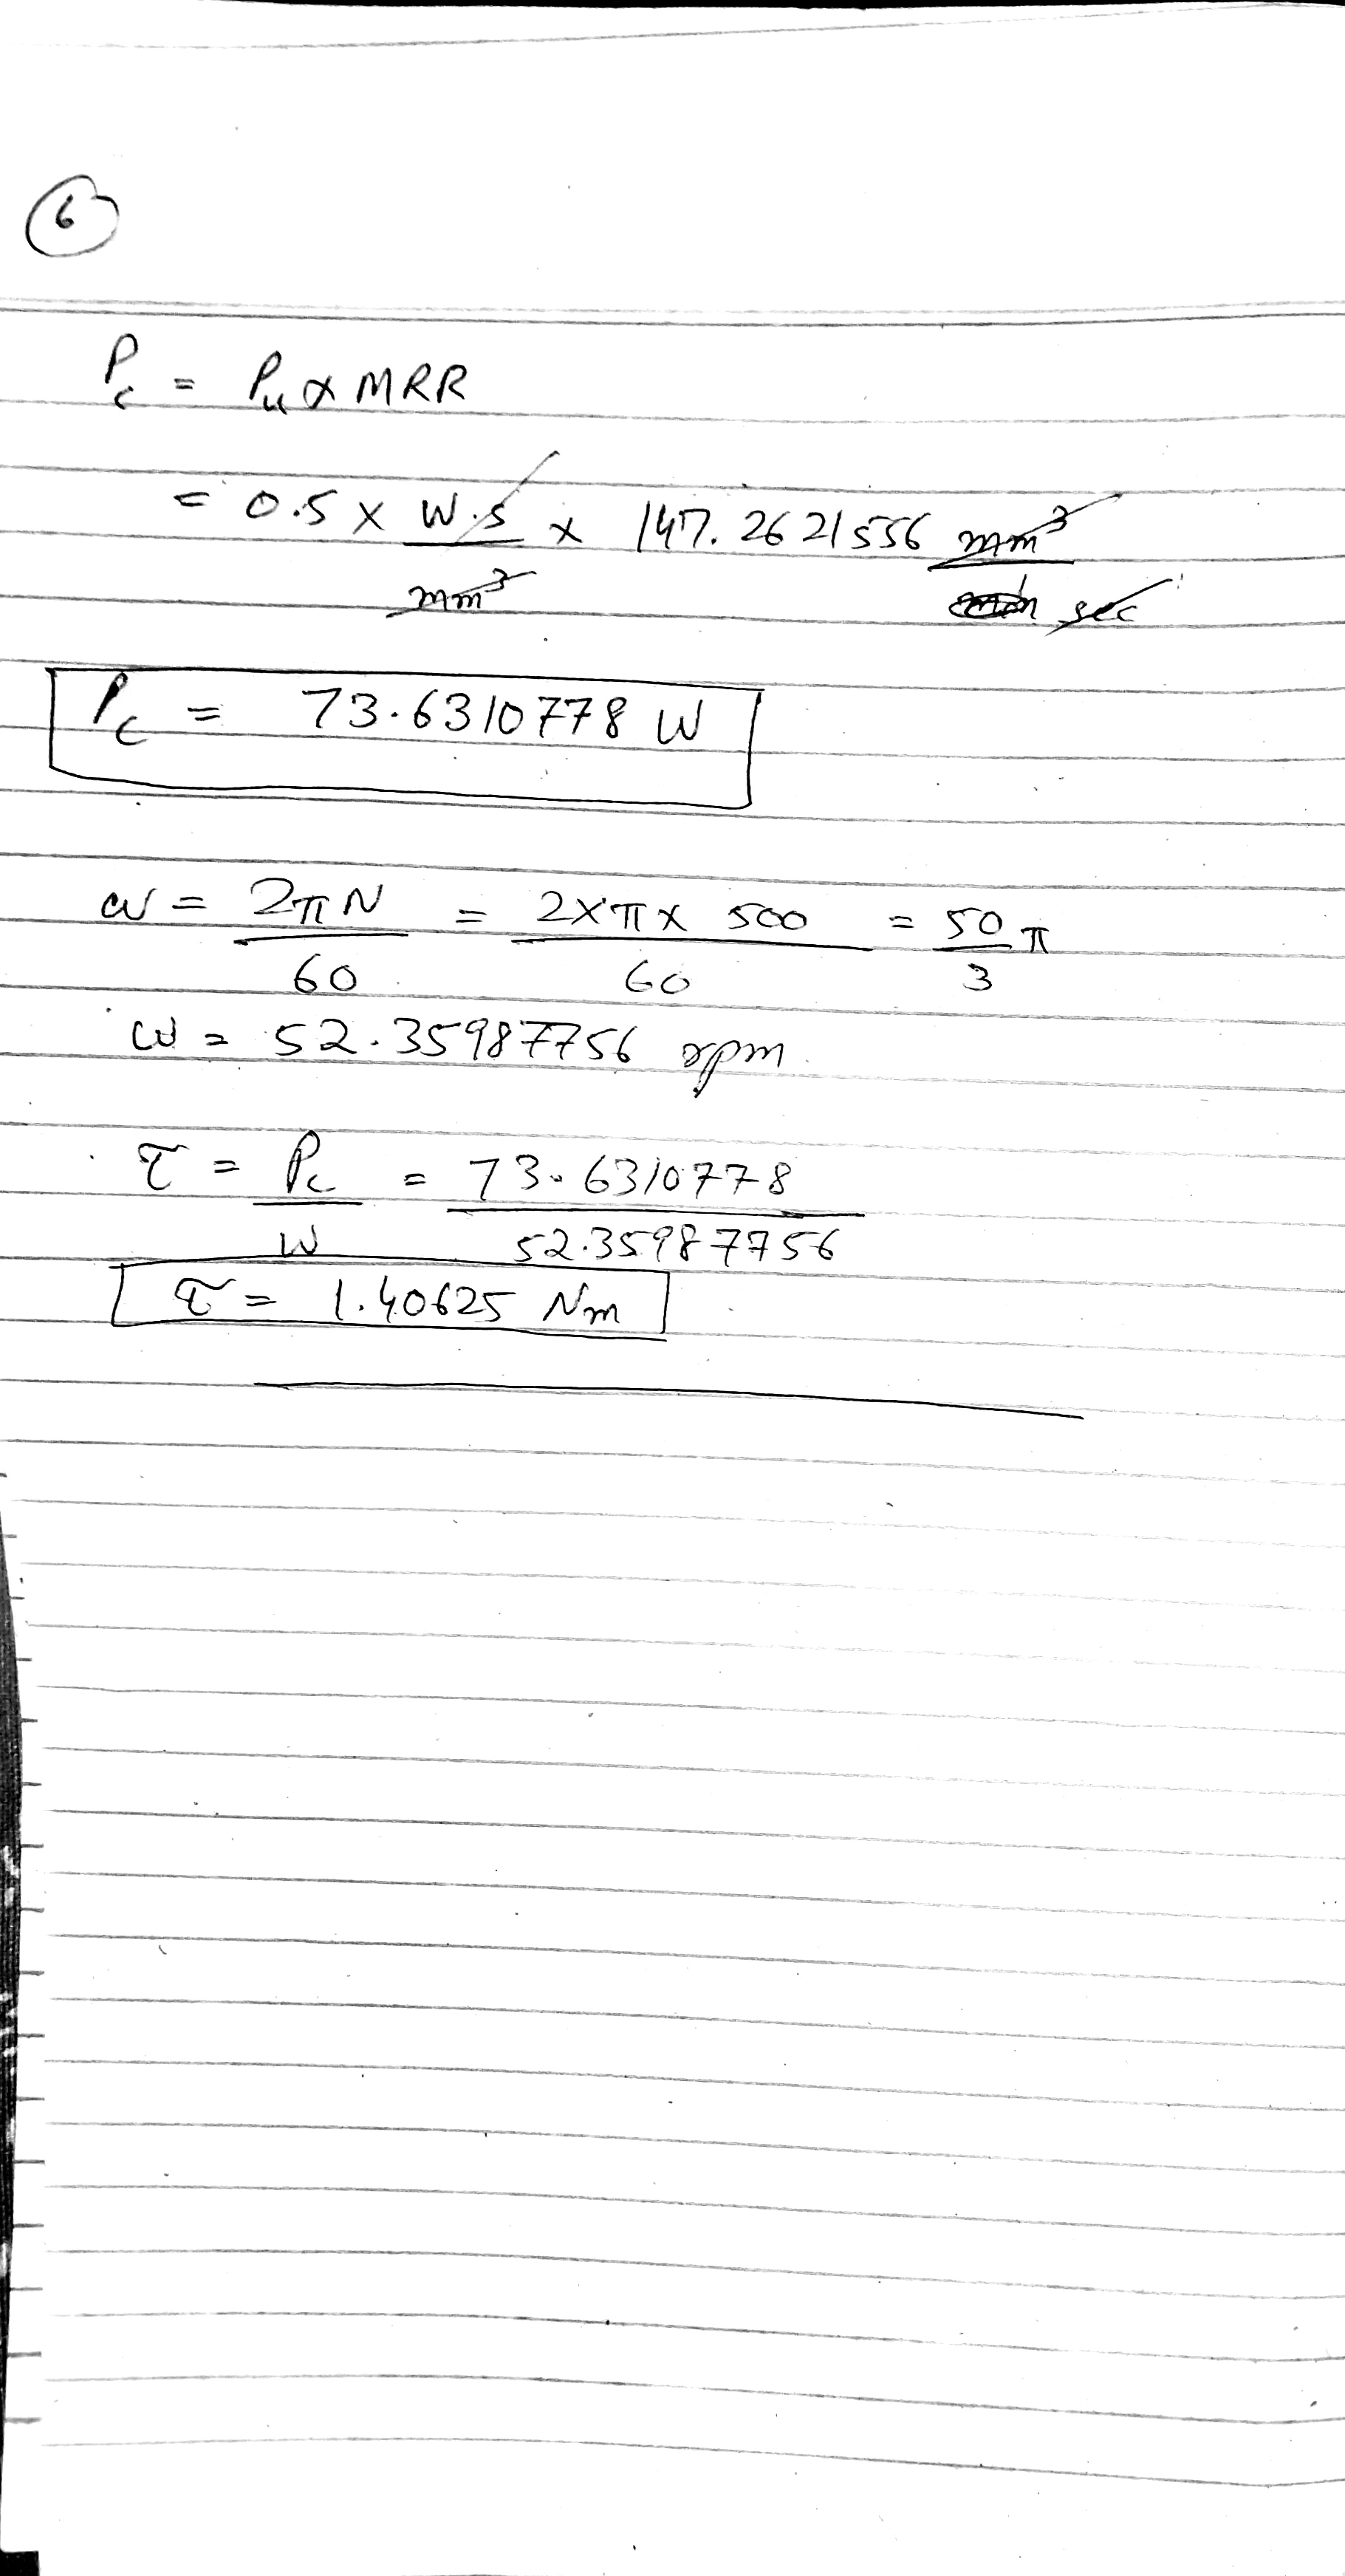 6
P_c = P_u x MRR
= 0.5 x W.s / mm³ x 147.2621556 mm³ / sec
P_c = 73.6310778 W
ω = 2πN / 60 = 2xπx 500 / 60 = 50 π / 3
ω = 52.35987756 rpm
τ = P_c / ω = 73.6310778 / 52.35987756
τ = 1.40625 Nm